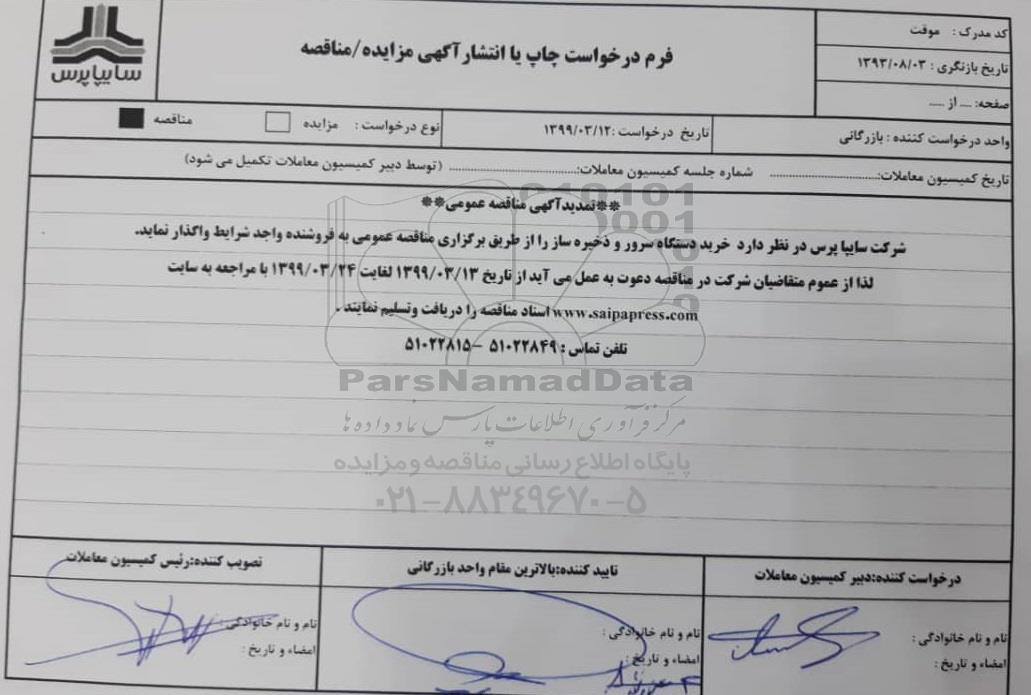 کد مدرک : موقت
تاریخ بازنگری : ۱۳۹۳/۰۸/۰۳
صفحه: ... از ...
فرم درخواست چاپ یا انتشار آگهی مزایده/مناقصه
سایپا پرس
واحد درخواست کننده : بازرگانی
تاریخ درخواست :۱۳۹۹/۰۳/۱۲
نوع درخواست : مزایده مناقصه
تاریخ کمیسیون معاملات:........................ شماره جلسه کمیسیون معاملات:........................ (توسط دبیر کمیسیون معاملات تکمیل می شود)
**تمدیدآگهی مناقصه عمومی**
شرکت سایپا پرس در نظر دارد خرید دستگاه سرور و ذخیره ساز را از طریق برگزاری مناقصه عمومی به فروشنده واجد شرایط واگذار نماید.
لذا از عموم متقاضیان شرکت در مناقصه دعوت به عمل می آید از تاریخ ۱۳۹۹/۰۳/۱۳ لغایت ۱۳۹۹/۰۳/۲۴ با مراجعه به سایت
www.saipapress.com اسناد مناقصه را دریافت وتسلیم نمایند .
تلفن تماس : ۵۱۰۲۲۸۴۹ – ۵۱۰۲۲۸۱۵
ParsNamadData
مرکز فرآوری اطلاعات پارس نماد داده ها
پایگاه اطلاع رسانی مناقصه و مزایده
۰۲۱-۸۸۳۴۹۶۷۰-۵
درخواست کننده:دبیر کمیسیون معاملات
تایید کننده:بالاترین مقام واحد بازرگانی
تصویب کننده:رئیس کمیسیون معاملات
نام و نام خانوادگی :
امضاء و تاریخ :
نام و نام خانوادگی :
امضاء و تاریخ :
نام و نام خانوادگی :
امضاء و تاریخ :